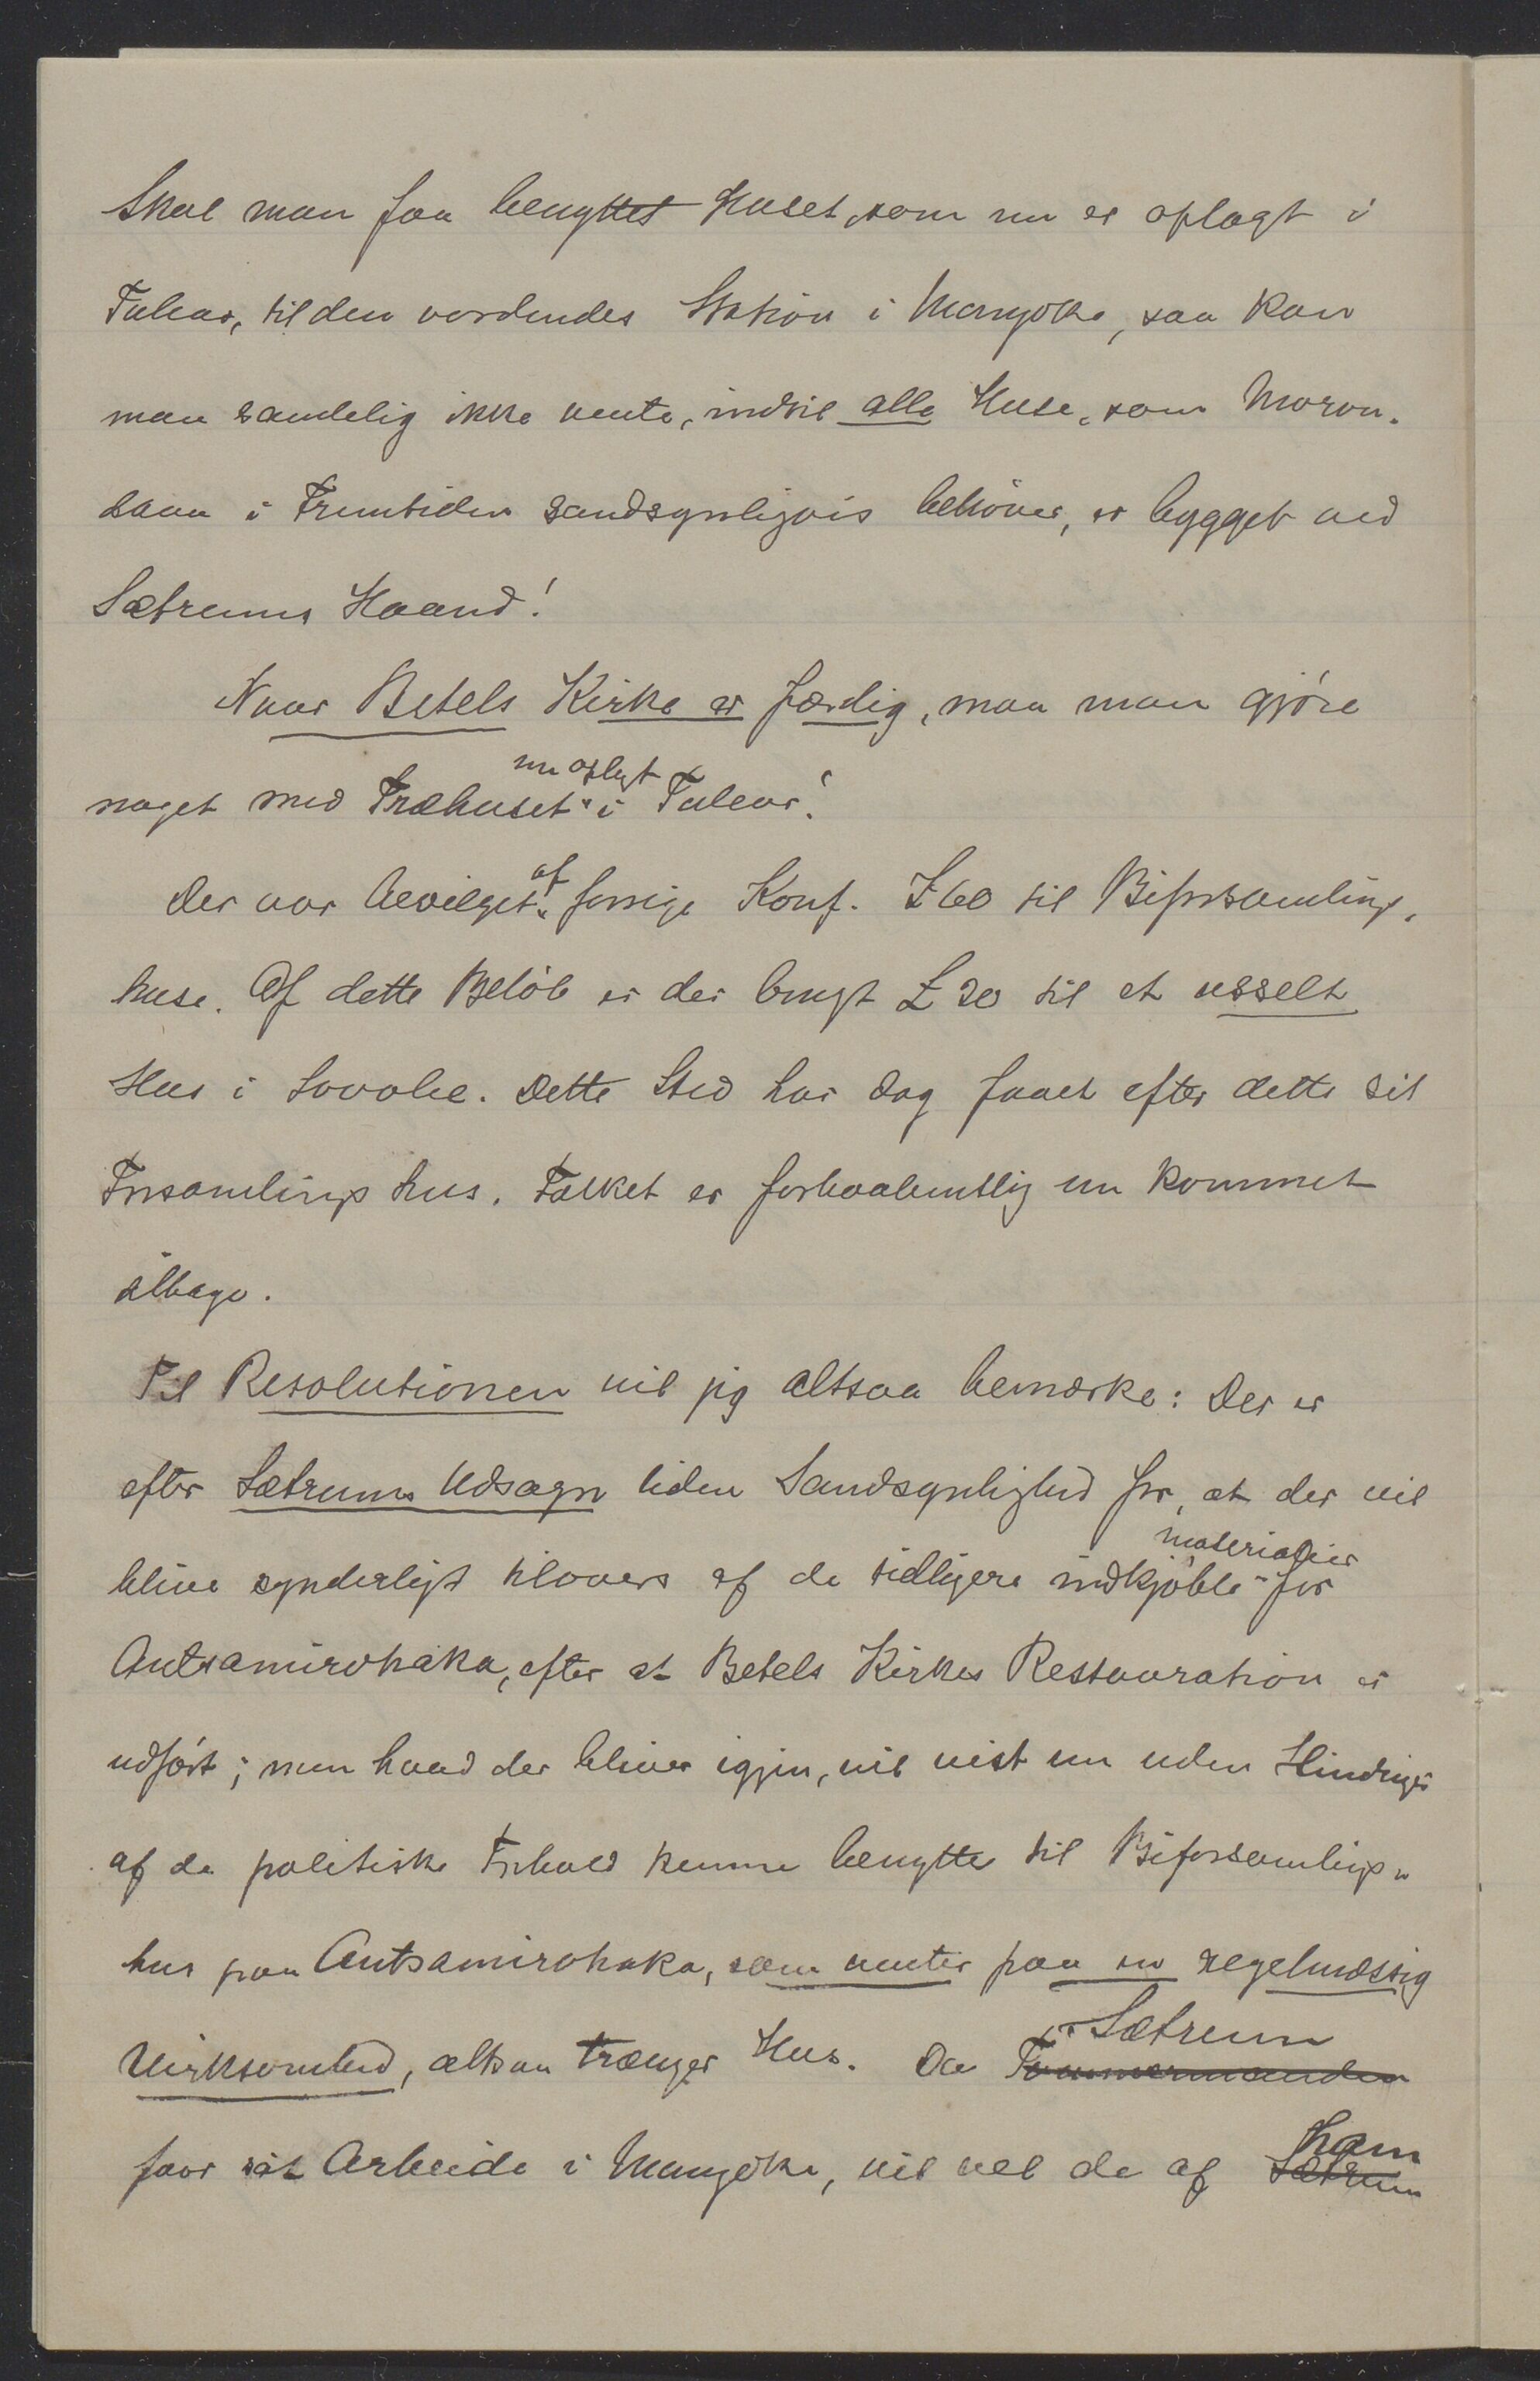 Skal man faa benyttet Huset, som nu er oplagt i
Tulear, til den vordendes Station i Manyoka, saa kan
man sandelig ikke vente, indtil alle Huse, som Moron-
dava i Fremtiden sandsynligvis behöver, er bygget ved
Sætrums Haand!
Naar Betels Kirke er færdig, maa man gjöre
nu oplagt
noget med Træhuset i Tulear!
af
Der var bevilget forrige Konf. £ 60 til Biforsamlings-
huse. Af dette Belöb er der brugt £ 20 til et usselt
Hus i Lovobe. Dette Sted har dog faaet efter dette sit
Forsamlings hus. Folket er forhaabentlig nu kommet
tilbage.
Til Resolutionen vil jeg altsaa bemærke: Der er
efter Sætrums Udsagn liden Sandsynlighed for, at der vil
materialier
blive synderligt tilovers af de tidligere indkjöbte for
Antsamirohaka, efter at Betels Kirkes Restauration er
udfört; men hvad der bliver igjen, vil vist nu uden Hindringer
af de politiske Forhold kunne benyttes til Biforsamlings-
hus paa Antsamirohaka, som venter paa en regelmæssig
Virksomhed, altsaa trænger Hus. Da Tömmermanden
Sætrum
faar sit Arbeide i Manyoka, vil vel de af Sætrum
ham